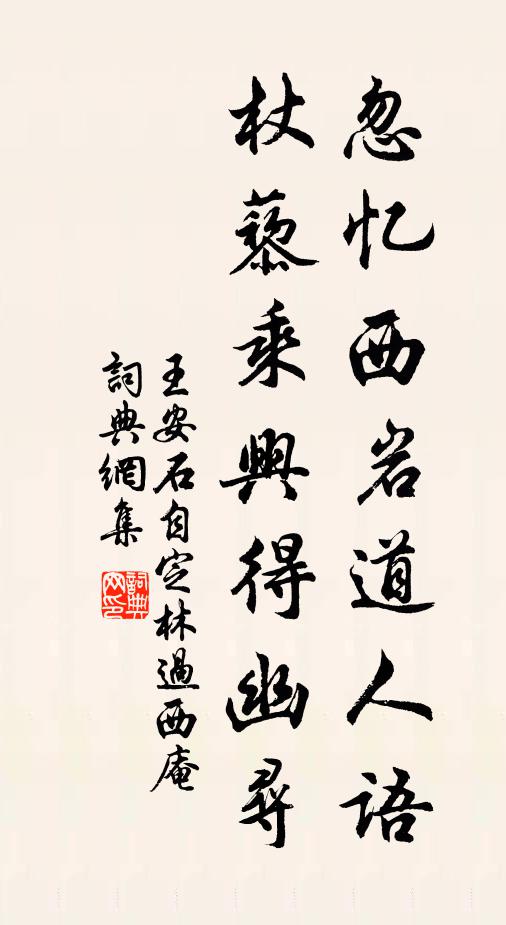 忽忆西岩道人語
杖藜乘興得幽尋
王安石自定林過西庵
詞典網集
詞典网印